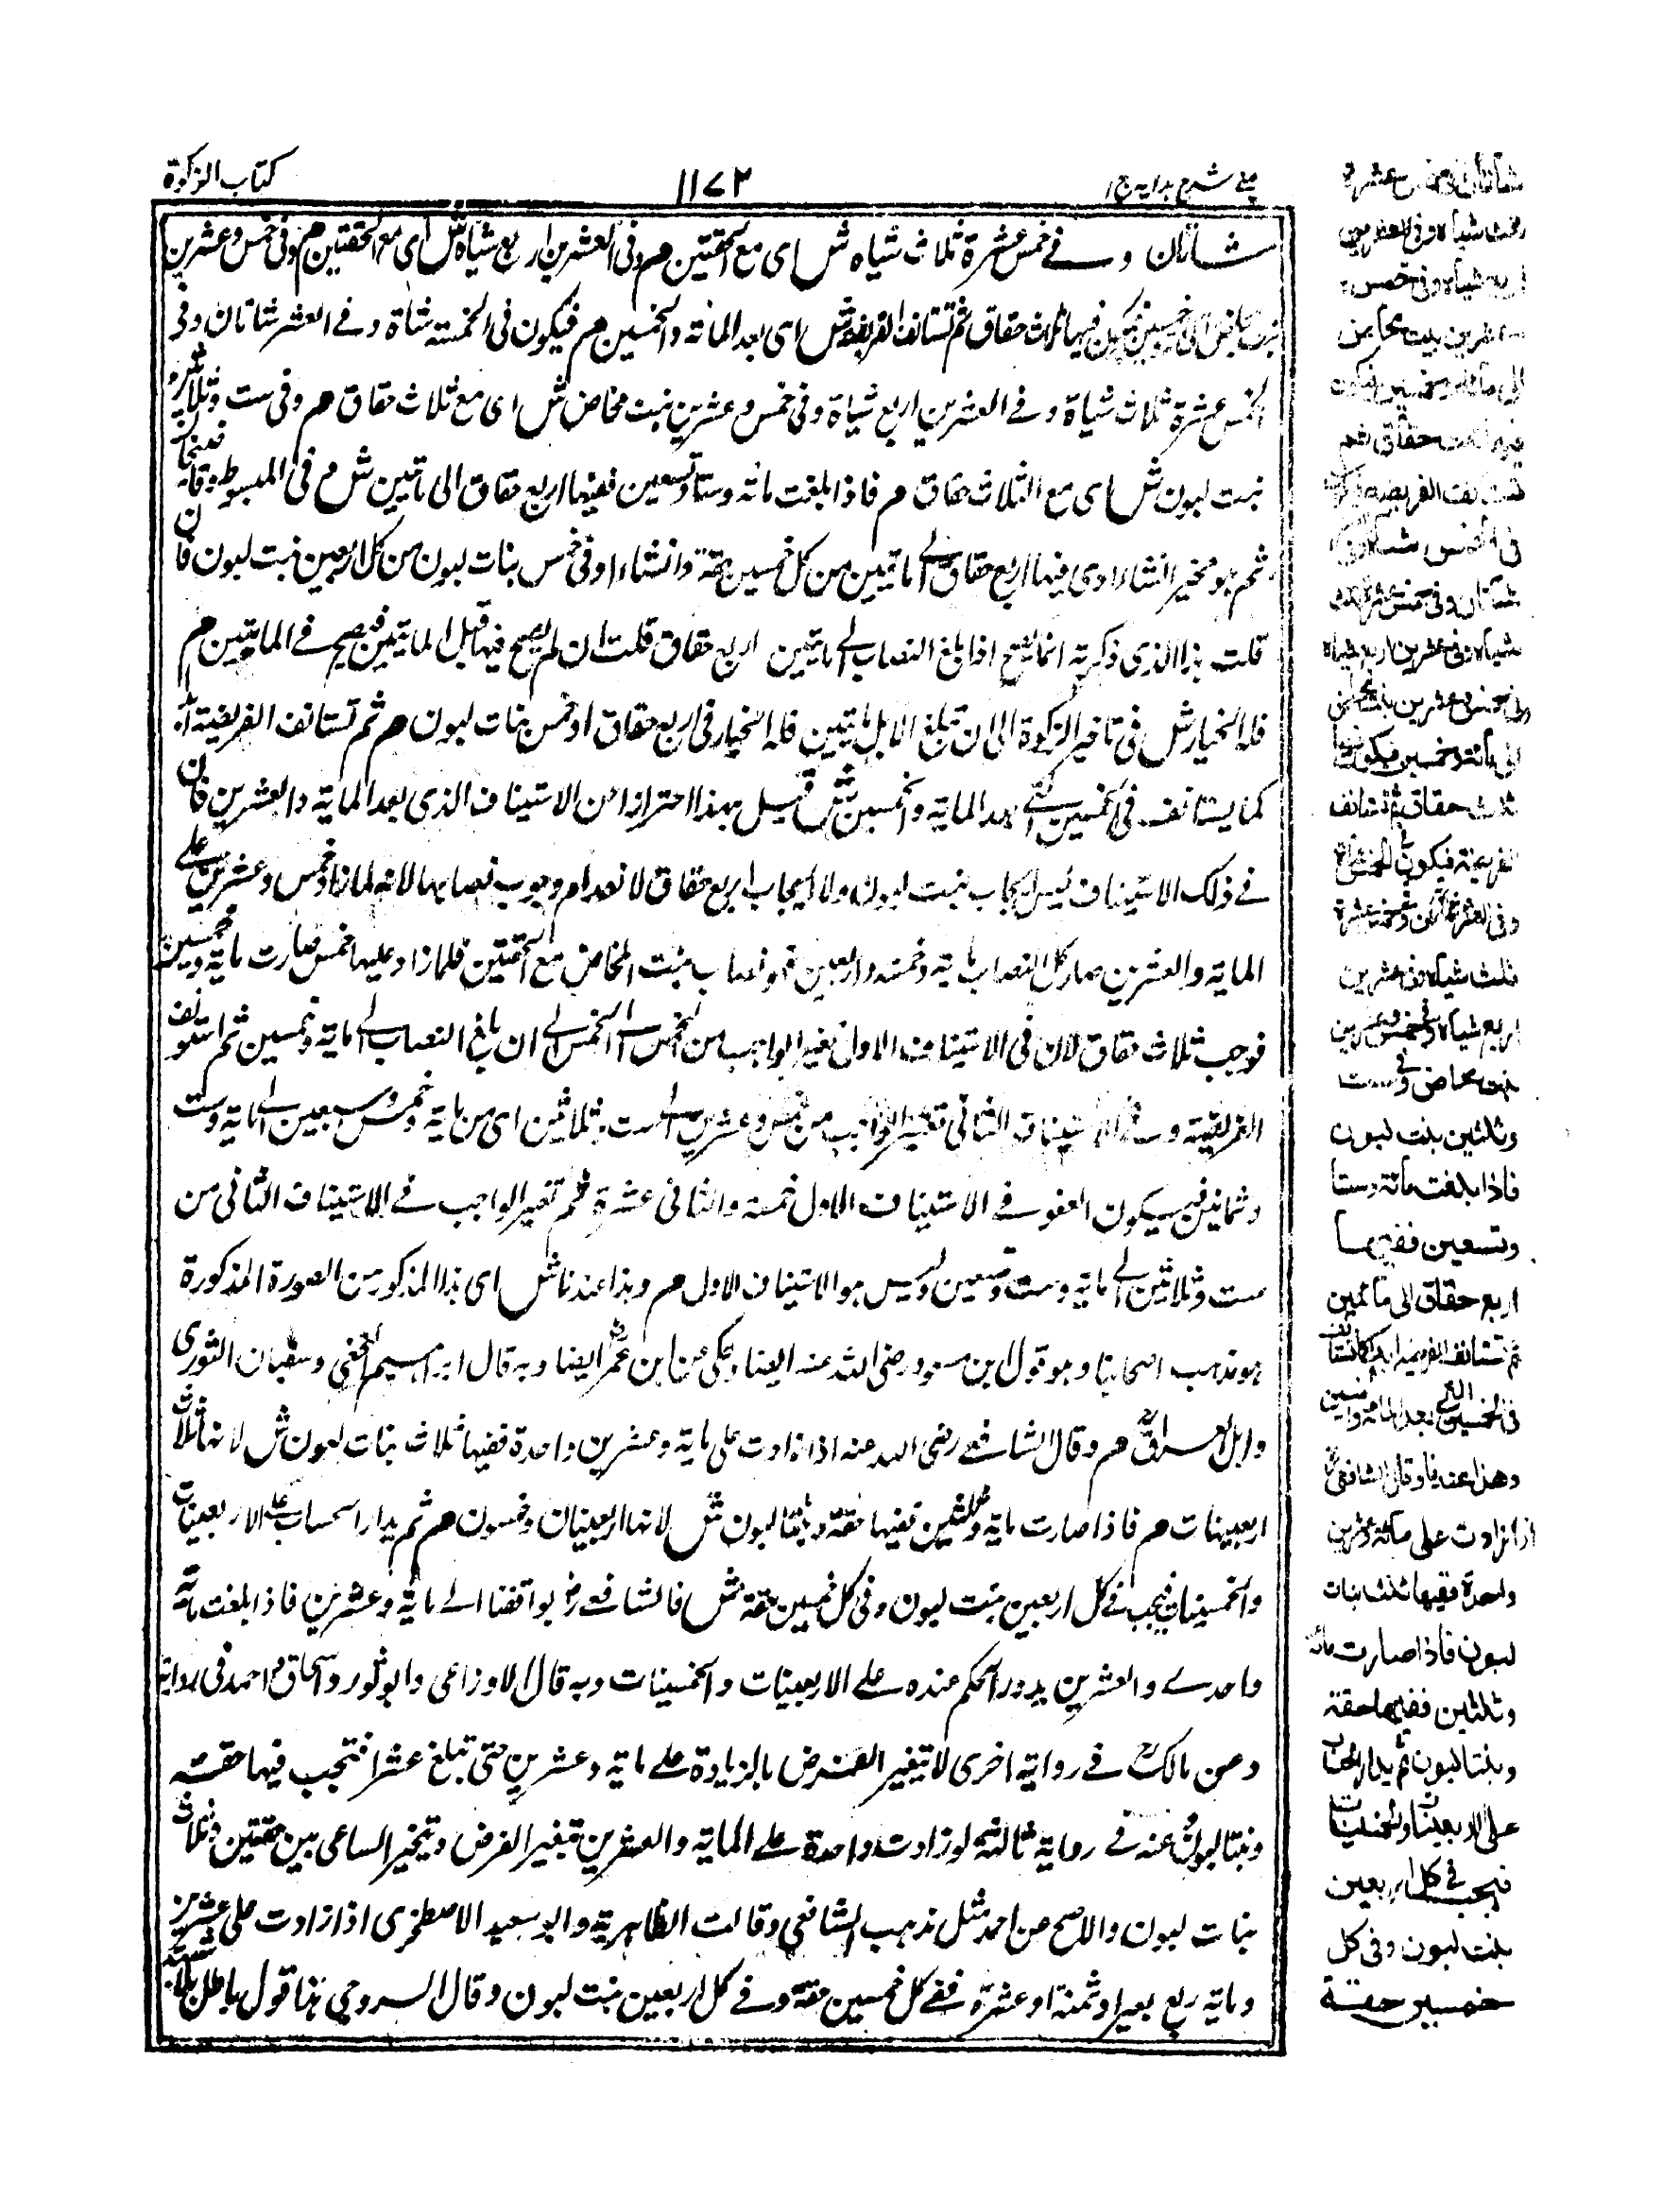 كتاب الزكوة
١١٧٢
شرح هدايه ج ١
شاتان وفي خمس عشرة ثلاث شياه ش اى مع الحقتين م وفى العشرين اربع شياه ش اى مع الحقتين م وفى خمس وعشرين
بنت مخاض الى خمسين فيكون فيها ثلاث حقاق ثم تستانف الفريضة ش اى بعد المائة والخمسين م فيكون فى الخمسة شاة وفي العشر شاتان وفى
الخمس عشرة ثلاث شياة وفي العشرين اربع شياة وفى خمس وعشرين بنت مخاض ش اى مع ثلاث حقاق م وفى ست وثلاثين
بنت لبون ش اى مع الثلاث حقاق م فاذا بلغت مائة وستا وتسعين ففيها اربع حقاق الى مأتين ش م فى المبسوط
ثم هو مخير انشاء ادى فيها اربع حقاق الے مأتين من كل خمسين حقة وانشاء ادفى خمس بنات لبون من كل اربعين بنت لبون فان
قلت هذا الذى ذكرته انما يتضح اذا بلغ النصاب الے مأتين اربع حقاق قلت ان لم يصح فيها قبل المايتين فيصح فے المايتين م
فله الخيار ش فى تاخير الزكوة الى ان تبلغ الابل مأتين فله الخيار فى اربع حقاق او خمس بنات لبون م ثم تستانف الفريضة ابدا
كما يستانف فى الخمسين التى بعد الماية والخمسين ش قيل بهذا احترازا من الاستيناف الذى بعد الماية والعشرين فان
فے ذلك الاستيناف ليس ايجاب بنت لبون ولا ايجاب اربع حقاق لانعدام وجوب نصابها لانه لما زاد خمس وعشرين على
الماية والعشرين صار كل النصاب ماية وخمسة واربعين فهو نصاب بنت المخاض مع الحقتين فلما زاد عليها خمس صارت ماية وخمسين
فوجب ثلاث حقاق لان فى الاستيناف الاول تغير الواجب من الخمس الے الخمس الے ان بلغ النصاب الے ماية وخمسين ثم استونف
الفريضة وفے الاستيناف الثانى تغير الواجب من خمس وعشرين الے ست وثلاثين اى من ماية وخمس وسبعين الے ماية وست
وثمانين فيكون العفو فے الاستيناف الاول خمسة والثانى عشرة ثم تغير الواجب فے الاستيناف الثانى من
ست وثلاثين الے ماية وست وتسعين وليس هو الاستيناف الاول م وهذا عندنا ش اى هذا المذكور من الصورة المذكورة
هو مذهب اصحابنا وهو قول ابن مسعود رضى الله عنه ايضا ويحكى عن ابن عمر ايضا وبه قال ابراهيم النخعى وسفيان الثورى
واهل العراق م وقال الشافعے رضى الله عنه اذا زادت على ماية وعشرين واحدة ففيها ثلاث بنات لبون ش لانها ثلاث
اربعينات م فاذا صارت ماية وثلثين ففيها حقة وبنتا لبون ش لانها اربعينان وخمسون م ثم يدار الحساب على الاربعينات
والخمسينات فيجب فے كل اربعين بنت لبون وفى كل خمسين حقة ش فالشافعے يوافقنا الے ماية وعشرين فاذا بلغت ماية
واحدے والعشرين يدور الحكم عنده علے الاربعينات والخمسينات وبه قال الاوزاعى وابو ثور واسحاق واحمد فى رواية
وعن مالك فے رواية اخرى لا يتغير الفرض بالزيادة علے ماية وعشرين حتى تبلغ عشرا فتجب فيها حقة
وبنتا لبون وعنه فے رواية ثالثة لو زادت واحدة علے الماية والعشرين تغير الفرض ويتخير الساعى بين حقتين وثلاث
بنات لبون والاصح عن احمد مثل مذهب الشافعى وقالت الظاهرية وابو سعيد الاصطخرى اذا زادت على عشرين
وماية ربع بعير او ثمنه او عشره ففے كل خمسين حقة وفے كل اربعين بنت لبون وقال السروجى هذا قول باطل
شاتان وفى خمس عشرة
ثلث شياه وفى العشرين
اربع شياه وفى خمس و
عشرين بنت مخاض
الى مائة وخمسين فيكون
فيها ثلث حقاق ثم
تستانف الفريضة فيكون
فى الخمس شاة وفى
شاتان وفى خمس عشرة
شياه وفى عشرين اربع شياه
وفى خمس وعشرين بنت مخاض
الى مائة وخمسين فيكون فيها
ثلث حقاق ثم تستانف
الفريضة فيكون فى الخمس شاة
وفى العشر شاتان وفى خمسة عشرة
ثلث شياه وفى عشرين
اربع شياه وفى خمس وعشرين
بنت مخاض وفى ست
وثلثين بنت لبون
فاذا بلغت مائة وستا
وتسعين ففيها
اربع حقاق الى مأتين
ثم تستانف الفريضة ابدا كما تستانف
فى الخمسين التى بعد المائة والخمسين
وهذا عندنا وقال الشافعى
اذا زادت على مائة وعشرين
واحدة ففيها ثلث بنات
لبون فاذا صارت مائة
وثلثين ففيها حقة
وبنتا لبون ثم يدار الحساب
على الاربعينات والخمسينات
فيجب فى كل اربعين
بنت لبون وفى كل
خمسين حقة